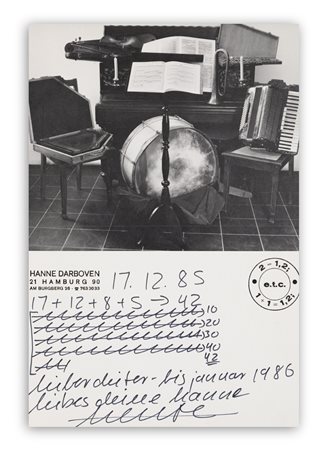 HANNE DARBOVEN
21 HAMBURG 90
AM BURGBERG 26 · ☎ 763 30 33
17.12.85
2 - 1,2;
e.t.c.
1 + 1 - 1,2;
17 + 12 + 8 + 5 → 42
10
20
30
40
42
lieber dieter - bis januar 1986
liebes deine hanne
heute